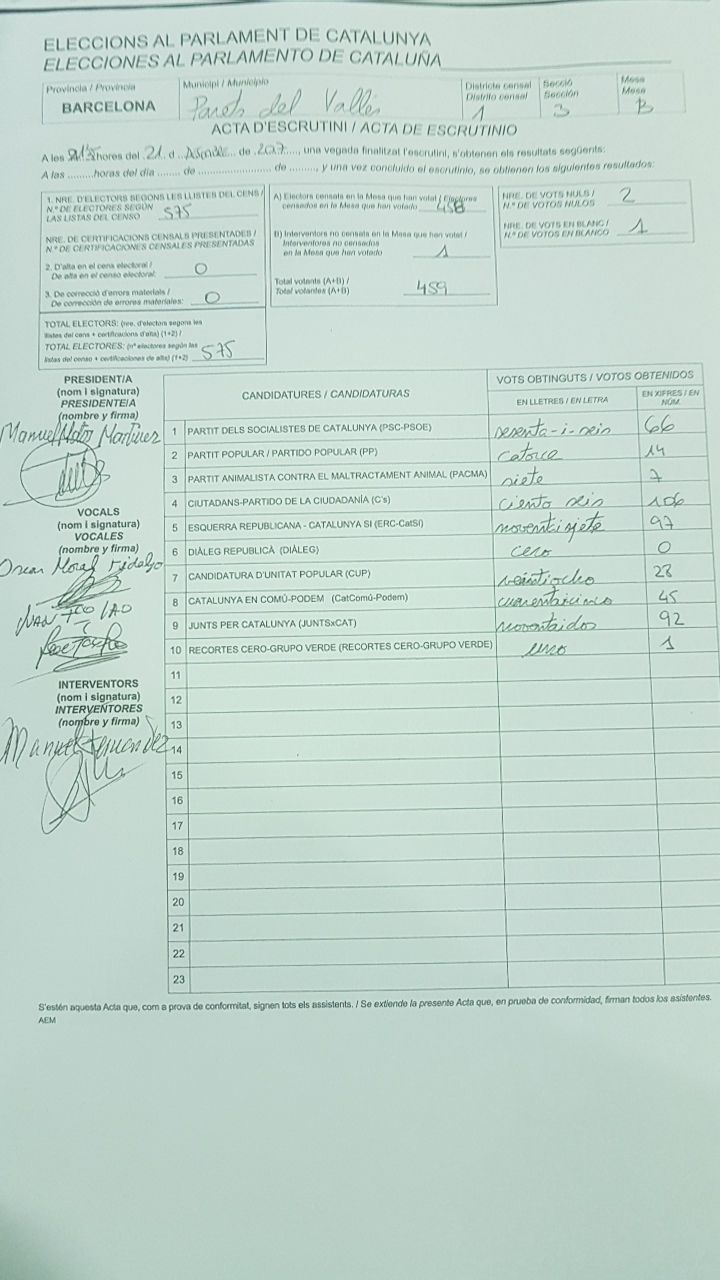 ELECCIONS AL PARLAMENT DE CATALUNYA
ELECCIONES AL PARLAMENTO DE CATALUÑA
Província / Provincia
BARCELONA
Municipi / Municipio
Parets del Vallès
Districte censal
Distrito censal
1
Secció
Sección
3
Mesa
Mesa
B
ACTA D'ESCRUTINI / ACTA DE ESCRUTINIO
A les hores del 21. d de 2017, una vegada finalitzat l'escrutini, s'obtenen els resultats següents:
A las ........horas del día ....... de ...................... de ........, y una vez concluido el escrutinio, se obtienen los siguientes resultados:
1. NRE. D'ELECTORS SEGONS LES LLISTES DEL CENS /
N.º DE ELECTORES SEGÚN
LAS LISTAS DEL CENSO 575
NRE. DE CERTIFICACIONS CENSALS PRESENTADES /
N.º DE CERTIFICACIONES CENSALES PRESENTADAS
2. D'alta en el cens electoral /
De alta en el censo electoral: 0
3. De correcció d'errors materials /
De corrección de errores materiales: 0
TOTAL ELECTORS: (nre. d'electors segons les
llistes del cens + certificacions d'alta) (1+2) /
TOTAL ELECTORES: (nº electores según las
listas del censo + certificaciones de alta) (1+2) 575
A) Electors censats en la Mesa que han votat / Electores
censados en la Mesa que han votado 458
B) Interventors no censats en la Mesa que han votat /
Interventores no censados
en la Mesa que han votado 1
Total votants (A+B) /
Total votantes (A+B) 459
NRE. DE VOTS NULS /
N.º DE VOTOS NULOS 2
NRE. DE VOTS EN BLANC /
N.º DE VOTOS EN BLANCO 1
PRESIDENT/A
(nom i signatura)
PRESIDENTE/A
(nombre y firma)
Manuel Martinez
VOCALS
(nom i signatura)
VOCALES
(nombre y firma)
Oscar Moral Fidalgo
INTERVENTORS
(nom i signatura)
INTERVENTORES
(nombre y firma)
Manuel
CANDIDATURES / CANDIDATURAS
VOTS OBTINGUTS / VOTOS OBTENIDOS
EN LLETRES / EN LETRA
EN XIFRES / EN
NÚM.
1 PARTIT DELS SOCIALISTES DE CATALUNYA (PSC-PSOE) sesenta-i-seis 66
2 PARTIT POPULAR / PARTIDO POPULAR (PP) catorce 14
3 PARTIT ANIMALISTA CONTRA EL MALTRACTAMENT ANIMAL (PACMA) siete 7
4 CIUTADANS-PARTIDO DE LA CIUDADANÍA (C's) ciento seis 106
5 ESQUERRA REPUBLICANA - CATALUNYA SI (ERC-CatSí) noventisiete 97
6 DIÀLEG REPUBLICÀ (DIÀLEG) cero 0
7 CANDIDATURA D'UNITAT POPULAR (CUP) veintiocho 28
8 CATALUNYA EN COMÚ-PODEM (CatComú-Podem) cuarentaicinco 45
9 JUNTS PER CATALUNYA (JUNTSxCAT) noventaidos 92
10 RECORTES CERO-GRUPO VERDE (RECORTES CERO-GRUPO VERDE) uno 1
11
12
13
14
15
16
17
18
19
20
21
22
23
S'estén aquesta Acta que, com a prova de conformitat, signen tots els assistents. / Se extiende la presente Acta que, en prueba de conformidad, firman todos los asistentes.
AEM